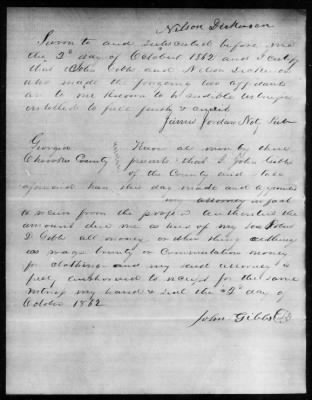 Nelson Dickerson
Sworn to and subscribed before me
the 2d day of October 1862 and I certify
that John Gibbs and Nelson Dickerson
who made the foregoing two affidavits
are to me known to be credible witnesses
entitled to full faith & credit
James Jordan Not Pub
Georgia
Cherokee County
Know all men by these
presents that I John Gibbs
of the County and State
aforesaid han this day made and appointed
my attorney in fact
to receive from the proper authorities the
amount due me as heir of my son
D Gibbs all money or other thing
as wages County or Commutation money
for clothing and my said attorney is
fully authorised to receipt for the same
my hand & seal the 2d day of
October 1862
John Gibbs